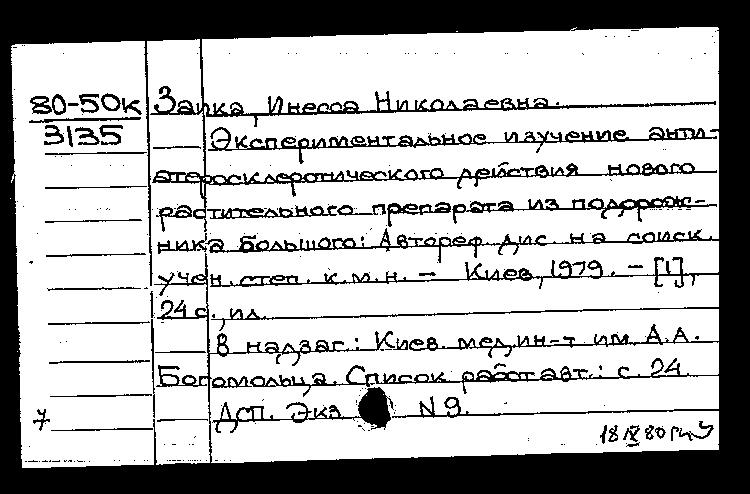 80-50к
3135
Заика, Инесса Николаевна.
Экспериментальное изучение анти-
атеросклеротического действия нового
растительного препарата из подорож-
ника большого: Автореф. дис. на соиск.
учен. степ. к.м.н. – Киев, 1979. – [1],
24 с., ил.
В надзаг.: Киев. мед. ин-т им. А.А.
Богомольца. Список работ авт.: с. 24.
Дсп. Экз N 9.
7
18 IV 80